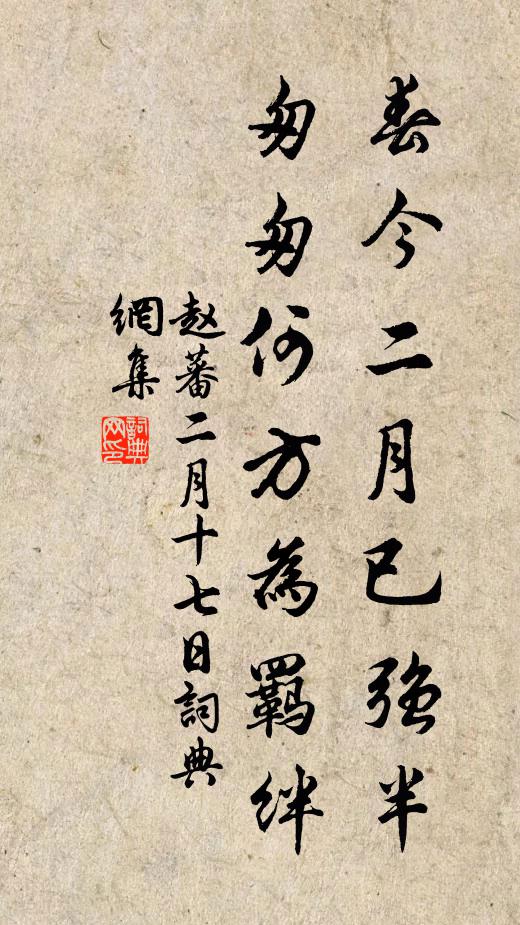 春今二月已強半
匆匆何方為羈絆
赵蕃二月十七日詞典
網集
詞典
网印